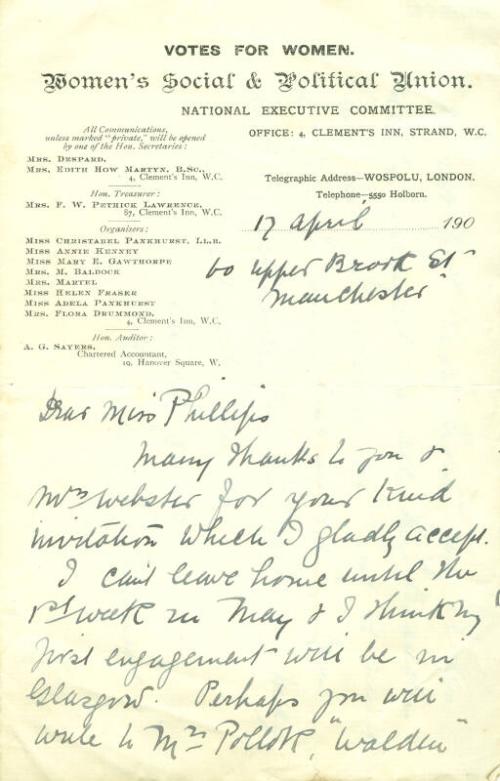 VOTES FOR WOMEN.
Women's Social & Political Union.
NATIONAL EXECUTIVE COMMITTEE.
All Communications,
unless marked "private," will be opened
by one of the Hon. Secretaries:
MRS. DESPARD,
MRS. EDITH HOW MARTYN, B.SC.,
4, Clement's Inn, W.C.
Hon. Treasurer:
MRS. F. W. PETHICK LAWRENCE,
87, Clement's Inn, W.C.
Organisers:
MISS CHRISTABEL PANKHURST, LL.B.
MISS ANNIE KENNEY
MISS MARY E. GAWTHORPE
MRS. M. BALDOCK
MRS. MARTEL
MISS HELEN FRASER
MISS ADELA PANKHURST
MRS. FLORA DRUMMOND,
4, Clement's Inn, W.C.
Hon. Auditor:
A. G. SAYERS,
Chartered Accountant,
19, Hanover Square, W.
OFFICE: 4, CLEMENT'S INN, STRAND, W.C.
Telegraphic Address—WOSPOLU, LONDON.
Telephone—5550 Holborn.
17 April 190
60 Upper Brook St
Manchester
Dear Miss Phillips
Many thanks to you &
Mrs Webster for your kind
invitation which I gladly accept.
I can't leave home until the
1st week in May & I think my
first engagement will be in
Glasgow. Perhaps you will
write to Mrs Pollok, "Walden"